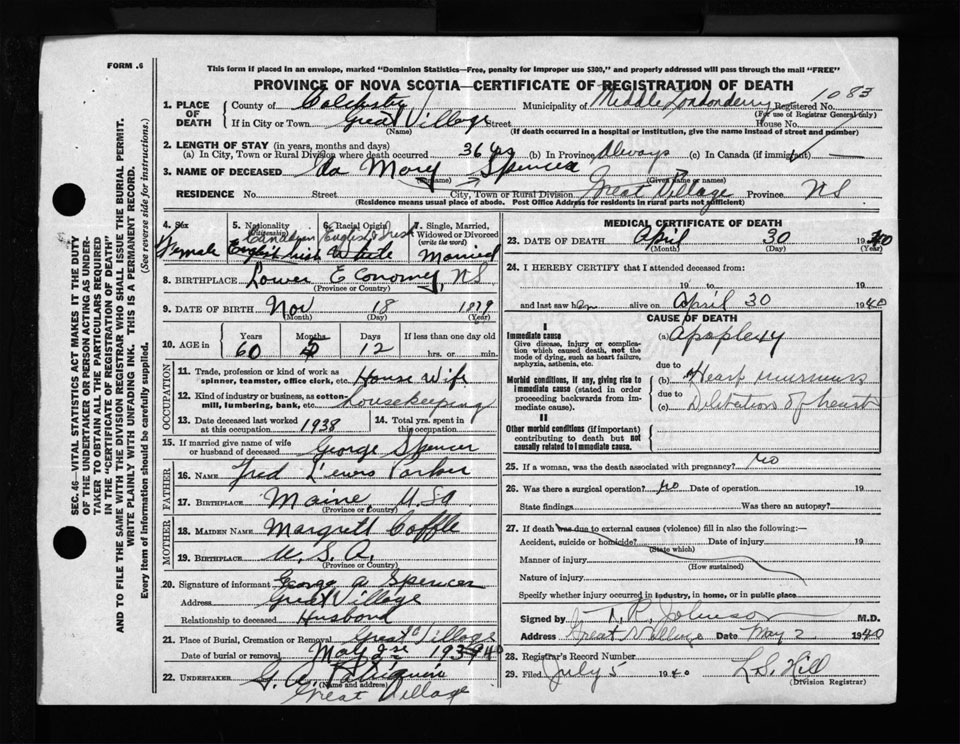 FORM .6
This form if placed in an envelope, marked "Dominion Statistics—Free, penalty for improper use $300," and properly addressed will pass through the mail "FREE"
PROVINCE OF NOVA SCOTIA—CERTIFICATE OF REGISTRATION OF DEATH
1. PLACE OF DEATH
County of Colchester Municipality of Middle Londonderry Registered No. 1083
(For use of Registrar General only)
If in City or Town Great Village Street House No.
(Name) (If death occurred in a hospital or institution, give the name instead of street and number)
2. LENGTH OF STAY (in years, months and days)
(a) In City, Town or Rural Division where death occurred 36 (b) In Province Always (c) In Canada (if immigrant)
3. NAME OF DECEASED Ida Mary Spencer
(Surname) (Given name or names)
RESIDENCE No. Street City, Town or Rural Division Great Village Province NS
(Residence means usual place of abode. Post Office Address for residents in rural parts not sufficient)
4. Sex Female
5. Nationality (Citizenship) Canadian English Irish
6. Racial Origin English & Irish White
7. Single, Married, Widowed or Divorced (write the word) Married
8. BIRTHPLACE Lower Economy, NS
(Province or Country)
9. DATE OF BIRTH Nov 18 1879
(Month) (Day) (Year)
10. AGE in Years Months Days If less than one day old
60 12 hrs. or min.
OCCUPATION
11. Trade, profession or kind of work as spinner, teamster, office clerk, etc. House Wife
12. Kind of industry or business, as cotton-mill, lumbering, bank, etc. housekeeping
13. Date deceased last worked at this occupation 1938
14. Total yrs. spent in this occupation
15. If married give name of wife or husband of deceased George Spencer
FATHER
16. NAME Fred Lewis Parker
17. BIRTHPLACE Maine, USA
(Province or Country)
MOTHER
18. MAIDEN NAME Margrett Coffle
19. BIRTHPLACE U.S.A.
(Province or Country)
20. Signature of informant George A Spencer
Address Great Village
Relationship to deceased Husband
21. Place of Burial, Cremation or Removal Great Village
Date of burial or removal May 2nd 1940
22. UNDERTAKER
(Name and address)
Great Village
MEDICAL CERTIFICATE OF DEATH
23. DATE OF DEATH April 30 1940
(Month) (Day) (Year)
24. I HEREBY CERTIFY that I attended deceased from:
19 to 19
and last saw her alive on April 30 1940
CAUSE OF DEATH
I
Immediate cause
Give disease, injury or complication which caused death, not the mode of dying, such as heart failure, asphyxia, asthenia, etc.
(a) Apoplexy
due to
Morbid conditions, if any, giving rise to immediate cause (stated in order proceeding backwards from immediate cause).
(b) Heart murmurs
due to
(c) Dilitation of heart
II
Other morbid conditions (if important) contributing to death but not causally related to immediate cause.
25. If a woman, was the death associated with pregnancy? no
26. Was there a surgical operation? no Date of operation 19
State findings Was there an autopsy?
27. If death was due to external causes (violence) fill in also the following:—
Accident, suicide or homicide? Date of injury 19
(State which)
Manner of injury
(How sustained)
Nature of injury
Specify whether injury occurred in industry, in home, or in public place
Signed by T. R. Johnson M.D.
Address Great Village Date May 2 1940
28. Registrar's Record Number
29. Filed July 5 1940 L S. Hill
(Division Registrar)
SEC. 46—VITAL STATISTICS ACT MAKES IT THE DUTY
OF THE UNDERTAKER OR PERSON ACTING AS UNDER-
TAKER TO OBTAIN ALL THE PARTICULARS REQUIRED
IN THE "CERTIFICATE OF REGISTRATION OF DEATH"
AND TO FILE THE SAME WITH THE DIVISION REGISTRAR WHO SHALL ISSUE THE BURIAL PERMIT.
WRITE PLAINLY WITH UNFADING INK. THIS IS A PERMANENT RECORD.
Every item of information should be carefully supplied. (See reverse side for instructions.)